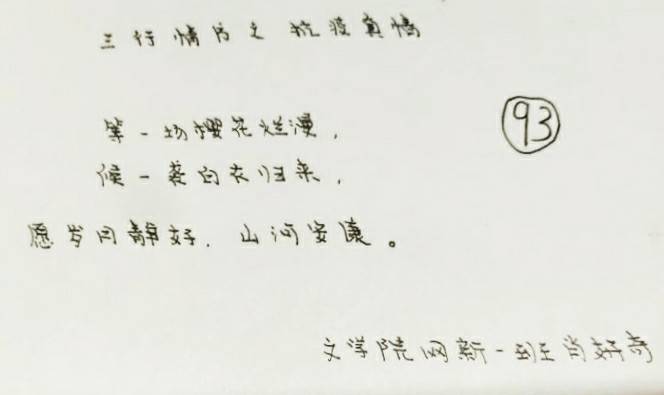 三行情书之抗疫真情
93
等一场樱花烂漫,
候一袭白衣归来,
愿岁月静好.山河安康。
文学院网新一班肖好奇